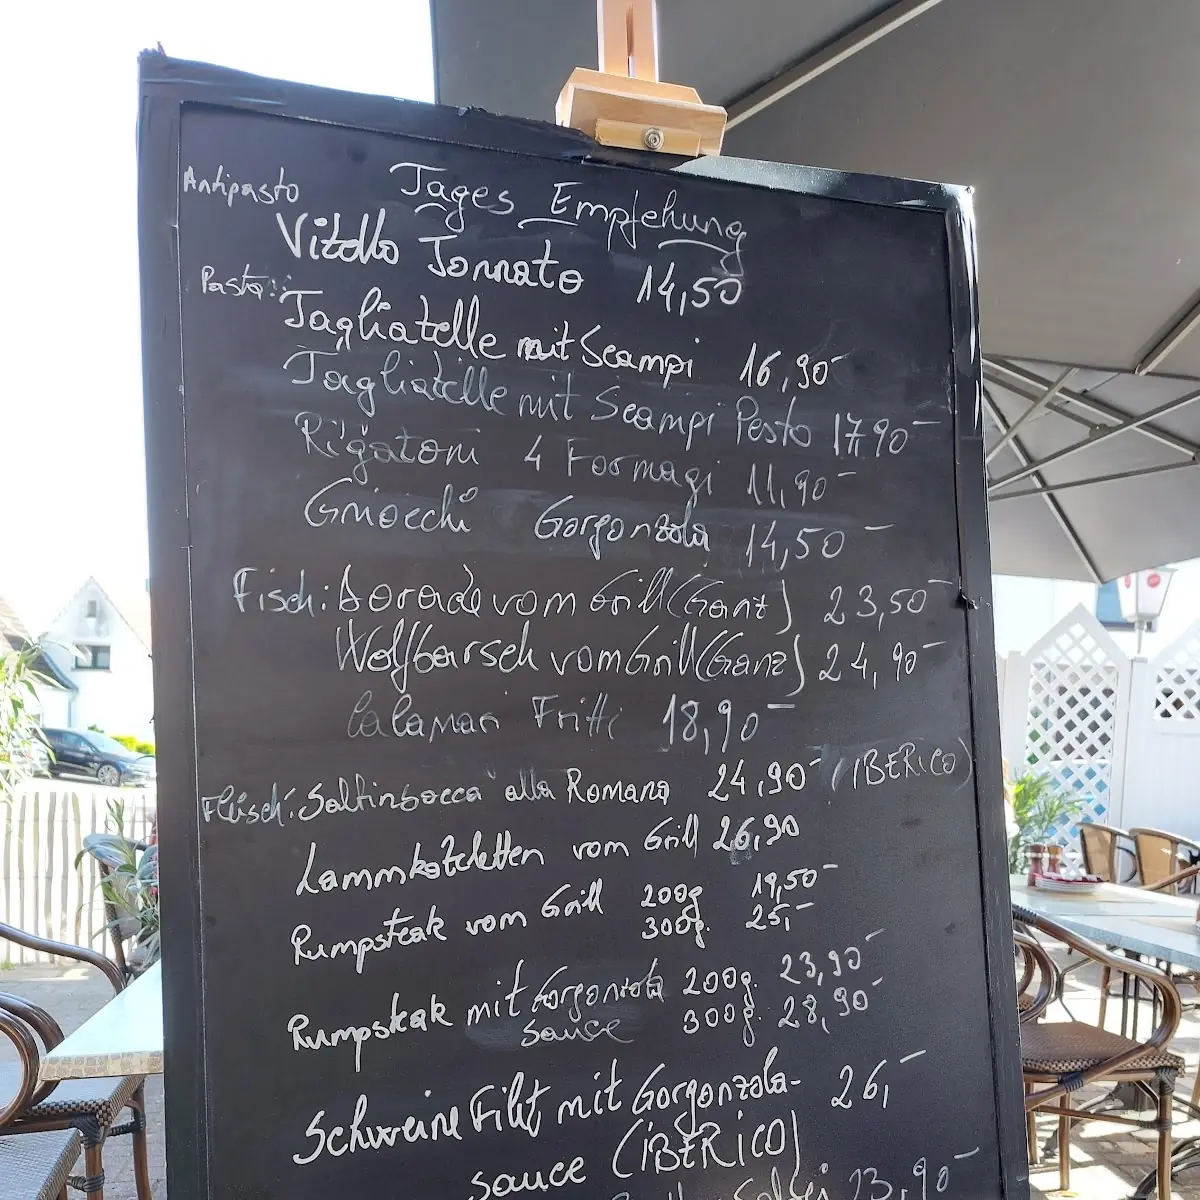 Tages Empfehung
Antipasto
Vitello Tonnato 14,50
Pasta:
Tagliatelle mit Scampi 16,90
Tagliatelle mit Scampi Pesto 17,90
Rigatoni 4 Formagi 11,90
Gniocchi Gorgonzola 14,50
Fisch: Dorade vom Grill (Ganz) 23,50
Wolfbarsch vom Grill (Ganz) 24,90
Calamari Fritti 18,90
Fleisch: Saltinbocca alla Romana 24,90 (IBERICO)
Lammkoteletten vom Grill 26,90
Rumpsteak vom Grill 200g 19,50
300g. 25,-
Rumpsteak mit Gorgonzola 200g. 23,90
sauce 300g. 28,90
Schweine Filet mit Gorgonzola- 26,-
sauce (IBERICO)
23,90